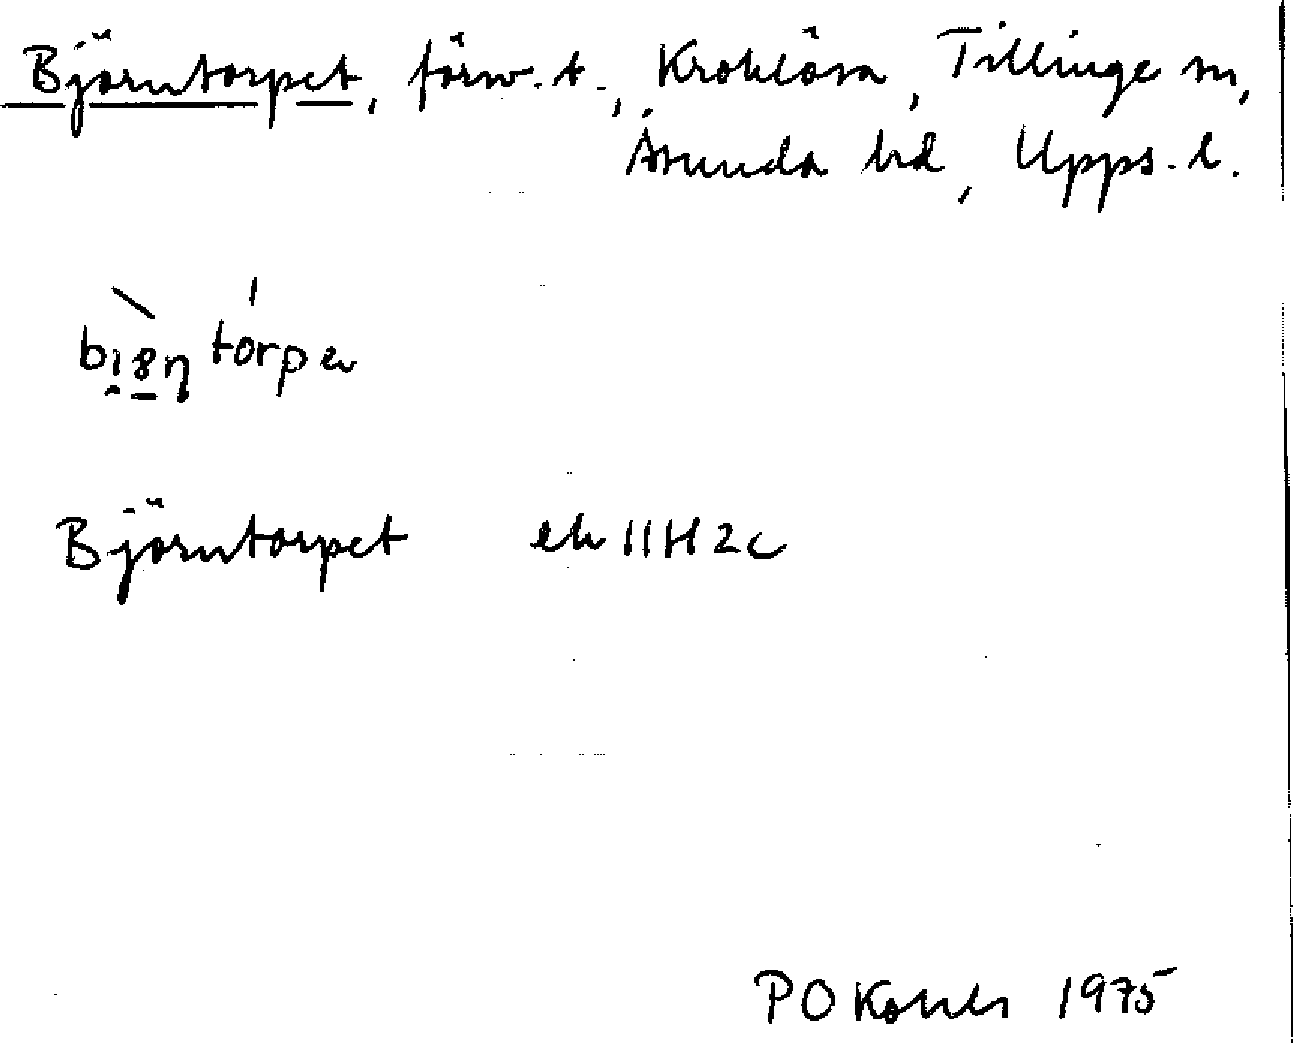 Björntorpet, förw. t., Kroklösa, Tillinge sn,
Åsunda hd, Upps. l.
Björntorpet ek 11H2c
PO 1975